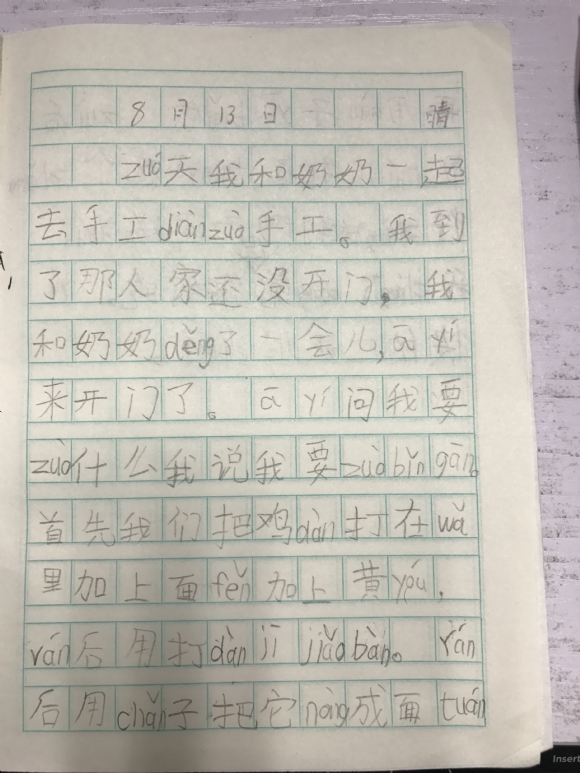 8月13日 晴
zuó天我和奶奶一起
去手工diànzuò手工。我到
了那人家还没开门,我
和奶奶děng了一会儿,ā yí
来开门了。ā yí问我要
zuò什么我说我要zuò bǐn gān。
首先我们把鸡dàn打在wǎ
里加上面fěn加上黄yóu,
rán后用打dàn jī jiǎo bàn。rán
后用chǎn子把它nòng成面tuán
Insert